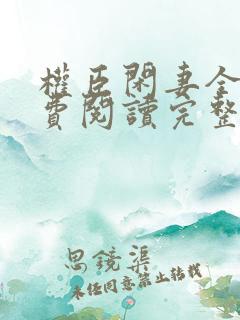 權臣閑妻全
費閱讀完整
思鏡渠
未经同意禁止转载